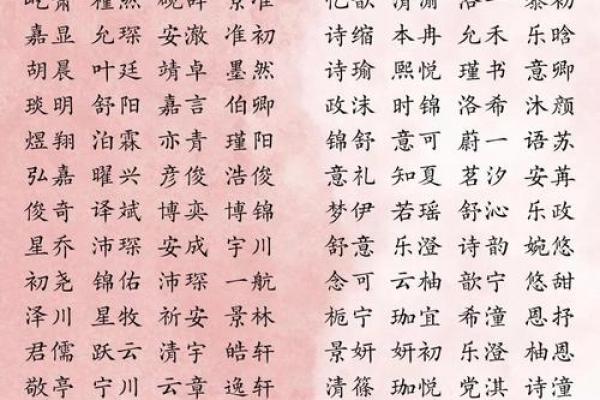 嘉显 允琛 安澈 准初 诗缩 本冉 允禾 乐晗
胡晨 叶廷 靖卓 墨然 诗瑜 熙悦 瑾书 意卿
琰明 舒阳 嘉言 伯卿 政沫 时锦 洛希 沐颜
煜翔 泊霖 亦青 瑾阳 锦舒 意可 蔚一 语苏
弘嘉 曜兴 彦俊 浩俊 意礼 知夏 茗汐 安苒
俊奇 译斌 博奕 博锦 梦伊 若瑶 舒沁 乐政
星乔 沛琛 安成 宇川 舒意 乐澄 诗韵 婉悠
初尧 锦佑 沛琛 一航 念可 云柚 歆宁 悠甜
泽川 星牧 祈安 景林 栀宁 珈宜 希潼 恩抒
君儒 跃云 清宇 皓轩 景妍 妍初 乐澄 柚恩
敬亭 宁川 云章 逸轩 清篠 珈悦 党淇 诗潼